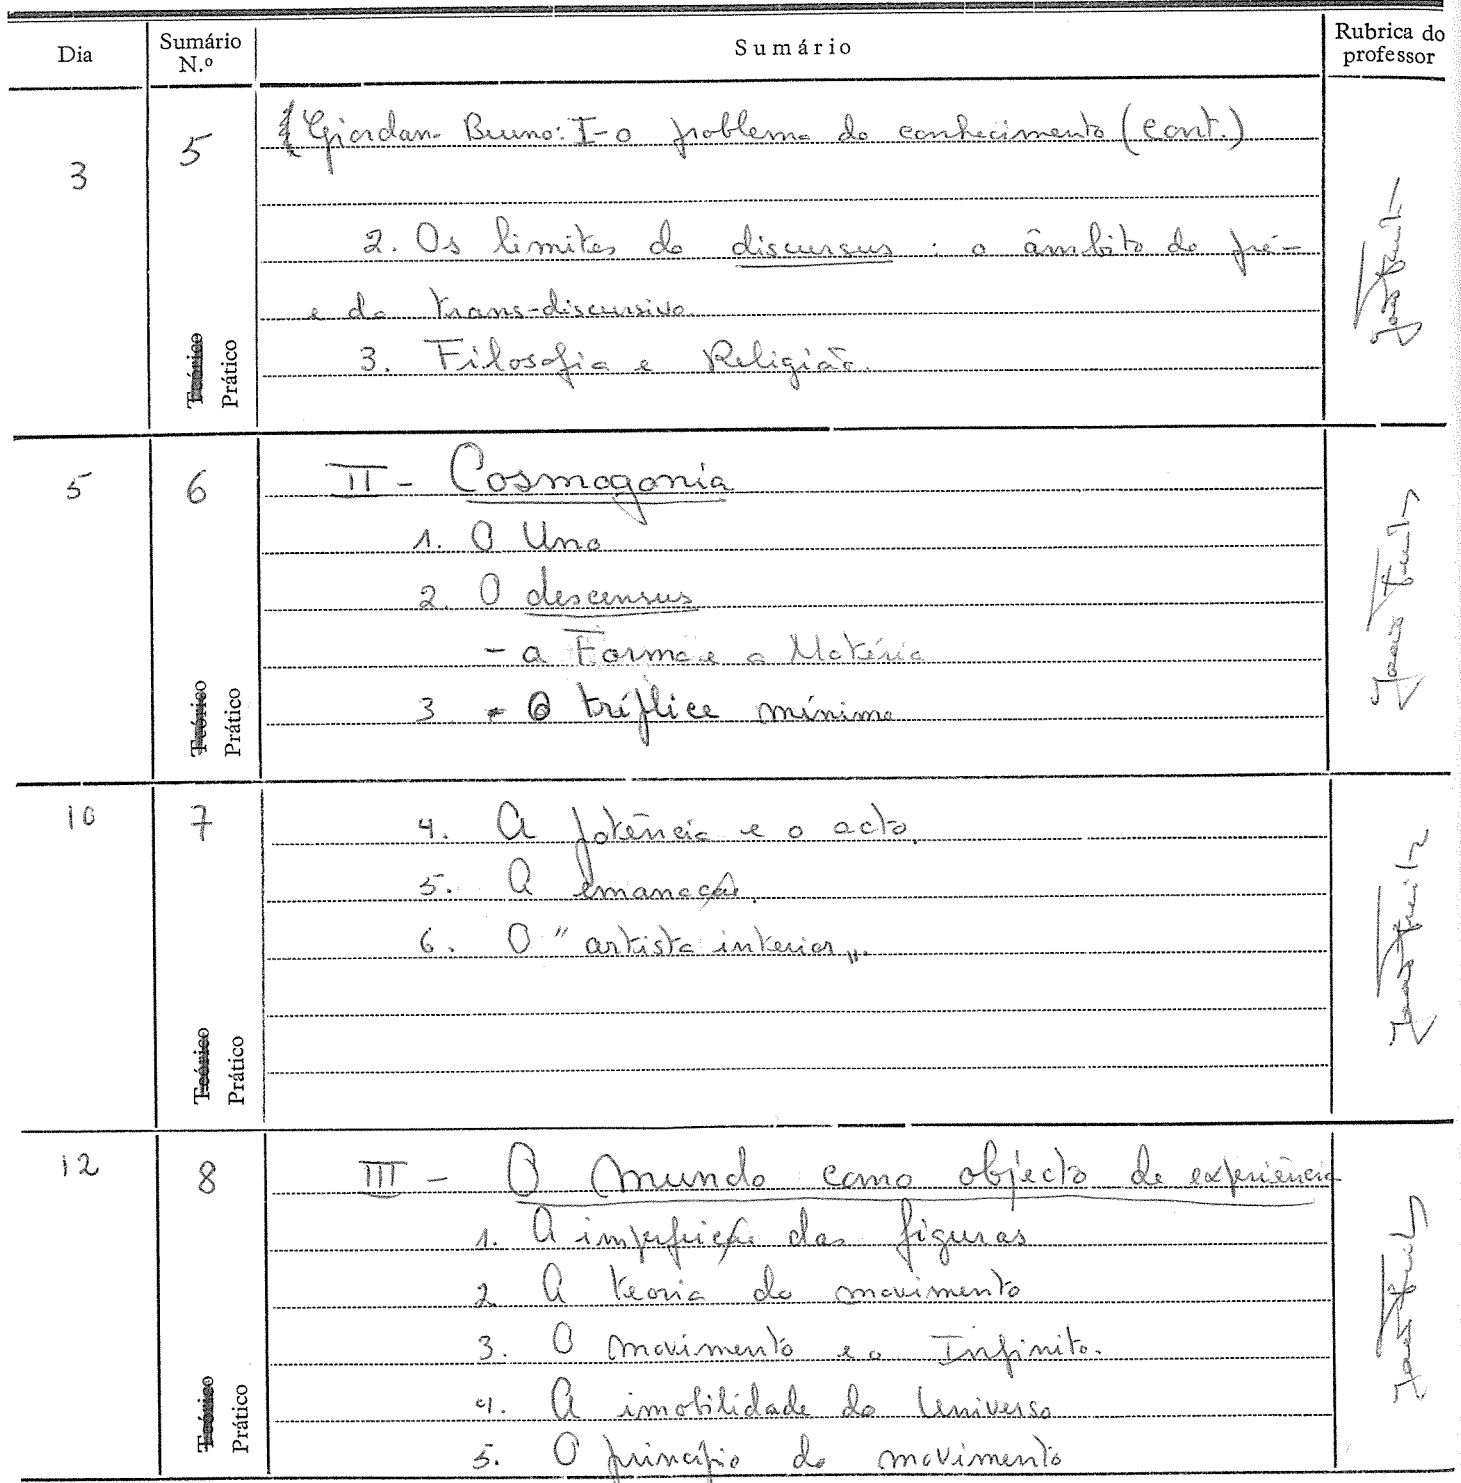 Dia
Sumário N.º
Sumário
Rubrica do professor
3
5
Giordano Bruno: I - o problema do conhecimento (cont.)
2. Os limites do discursus : o âmbito do pré-
e do trans-discursivo.
3. Filosofia e Religião.
Teórico
Prático
5
6
II - Cosmogonia
1. O Uno
2. O descensus
- a Forma e a Matéria
3 - O tríplice mínimo
Teórico
Prático
10
7
4. A potência e o acto.
5. A emanação.
6. O "artista interior".
Teórico
Prático
12
8
III - O mundo como objecto de experiência
1. A imperfeição das figuras
2 A teoria do movimento
3. O movimento e o Infinito.
4. A imobilidade do Universo
5. O princípio do movimento
Teórico
Prático